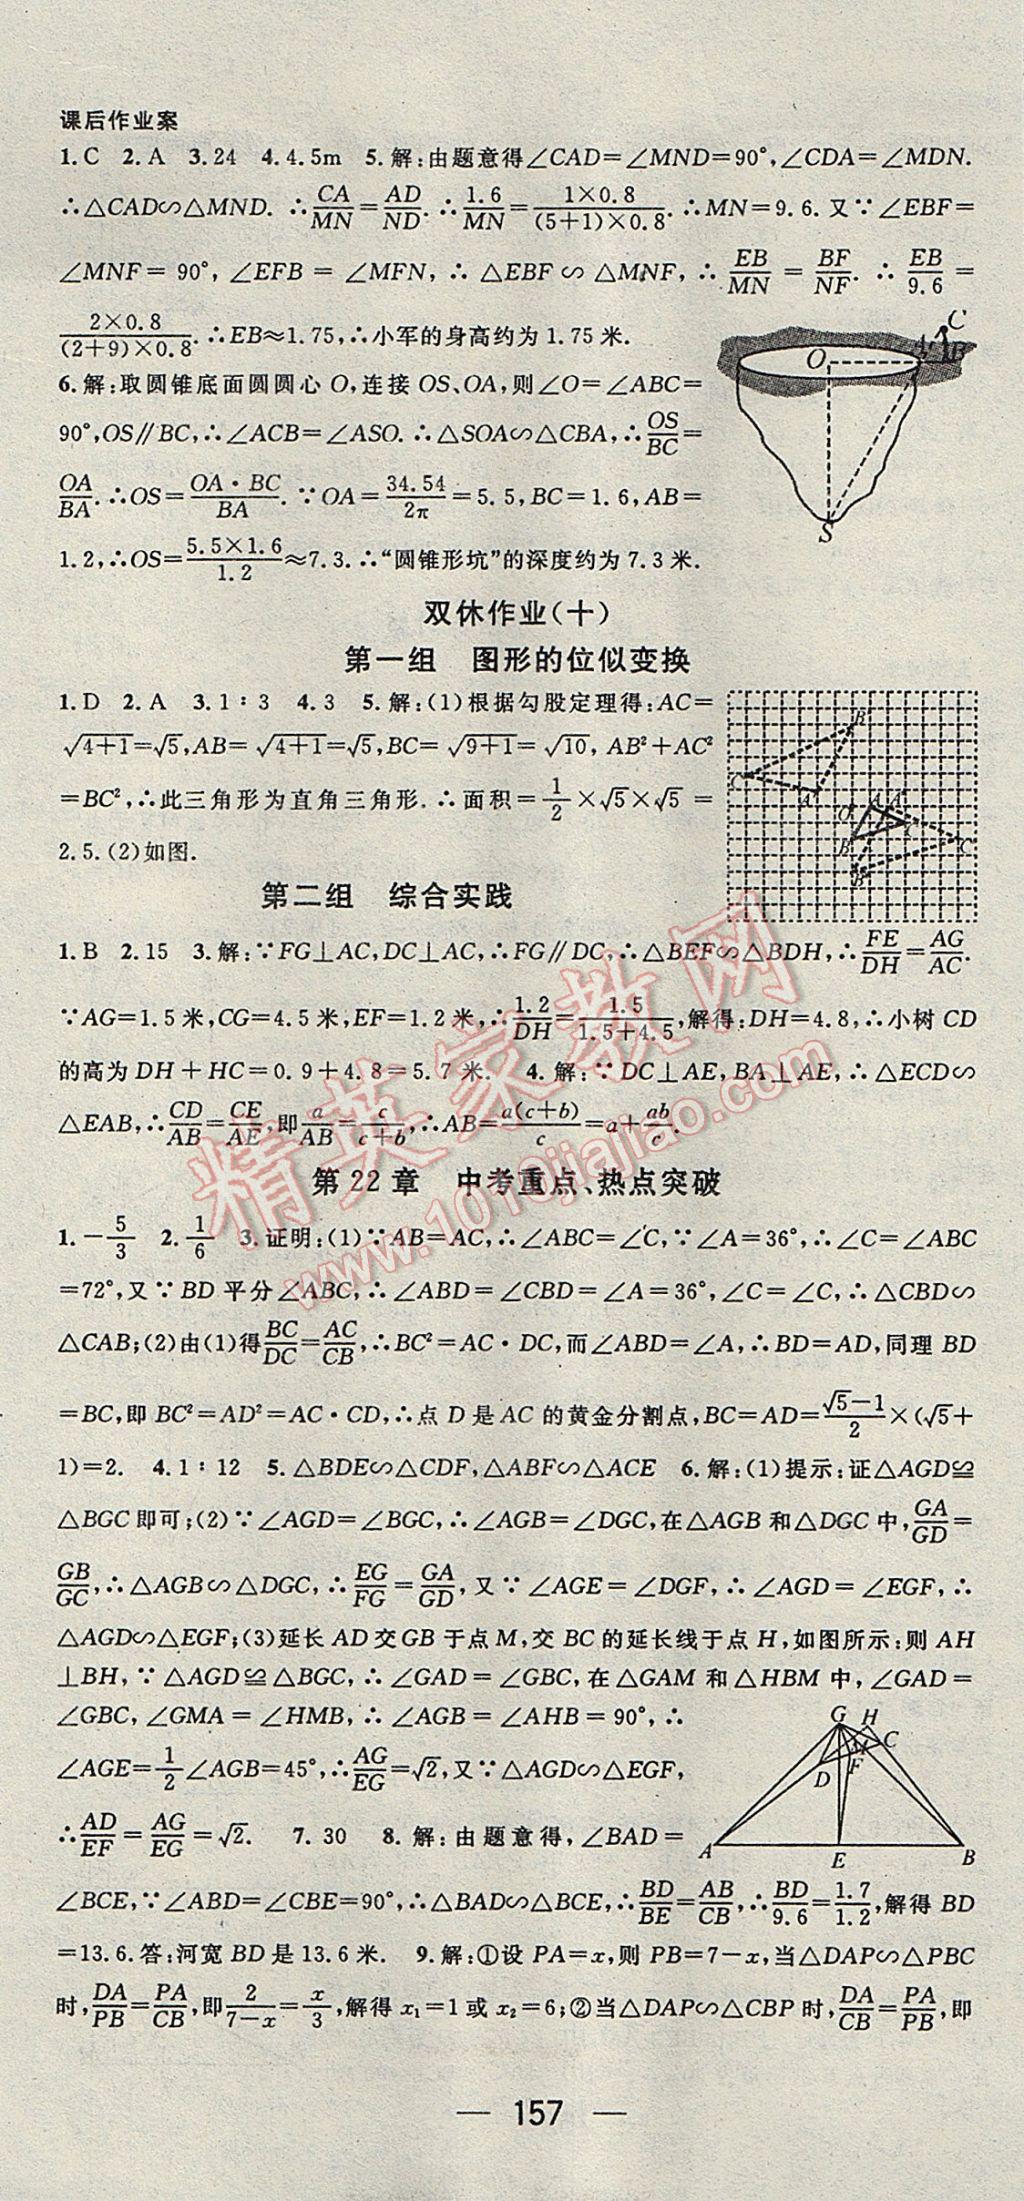 课后作业案
1.C 2.A 3.24 4.4.5m 5.解:由题意得∠CAD=∠MND=90°,∠CDA=∠MDN.
∴△CAD∽△MND. ∴CA/MN=AD/ND. ∴1.6/MN=(1×0.8)/((5+1)×0.8).∴MN=9.6.又∵∠EBF=
∠MNF=90°,∠EFB=∠MFN,∴△EBF∽△MNF,∴EB/MN=BF/NF. ∴EB/9.6=
(2×0.8)/((2+9)×0.8).∴EB≈1.75,∴小军的身高约为1.75米.
6.解:取圆锥底面圆圆心O,连接OS、OA,则∠O=∠ABC=
90°,OS∥BC,∴∠ACB=∠ASO.∴△SOA∽△CBA,∴OS/BC=
OA/BA.∴OS=(OA·BC)/BA.∵OA=34.54/2π=5.5,BC=1.6,AB=
1.2,∴OS=(5.5×1.6)/1.2≈7.3.∴“圆锥形坑”的深度约为7.3米.
O A C B S
双休作业(十)
第一组 图形的位似变换
1.D 2.A 3.1∶3 4.3 5.解:(1)根据勾股定理得:AC=
√(4+1)=√5,AB=√(4+1)=√5,BC=√(9+1)=√10,AB²+AC²
=BC²,∴此三角形为直角三角形.∴面积=1/2×√5×√5=
2.5.(2)如图.
第二组 综合实践
1.B 2.15 3.解:∵FG⊥AC,DC⊥AC,∴FG∥DC,∴△BEF∽△BDH,∴FE/DH=AG/AC.
∵AG=1.5米,CG=4.5米,EF=1.2米,∴1.2/DH=1.5/(1.5+4.5),解得:DH=4.8,∴小树CD
的高为DH+HC=0.9+4.8=5.7米. 4.解:∵DC⊥AE,BA⊥AE,∴△ECD∽
△EAB,∴CD/AB=CE/AE,即a/AB=c/(c+b),∴AB=a(c+b)/c=a+ab/c.
第22章 中考重点、热点突破
1.-5/3 2.1/6 3.证明:(1)∵AB=AC,∴∠ABC=∠C,∵∠A=36°,∴∠C=∠ABC
=72°,又∵BD平分∠ABC,∴∠ABD=∠CBD=∠A=36°,∠C=∠C,∴△CBD∽
△CAB;(2)由(1)得BC/DC=AC/CB,∴BC²=AC·DC,而∠ABD=∠A,∴BD=AD,同理BD
=BC,即BC²=AD²=AC·CD,∴点D是AC的黄金分割点,BC=AD=(√5-1)/2×(√5+
1)=2. 4.1∶12 5.△BDE∽△CDF,△ABF∽△ACE 6.解:(1)提示:证△AGD≌
△BGC即可;(2)∵∠AGD=∠BGC,∴∠AGB=∠DGC,在△AGB和△DGC中,GA/GD=
GB/GC,∴△AGB∽△DGC,∴EG/FG=GA/GD,又∵∠AGE=∠DGF,∴∠AGD=∠EGF,∴
△AGD∽△EGF;(3)延长AD交GB于点M,交BC的延长线于点H,如图所示:则AH
⊥BH,∵△AGD≌△BGC,∴∠GAD=∠GBC,在△GAM和△HBM中,∠GAD=
∠GBC,∠GMA=∠HMB,∴∠AGB=∠AHB=90°,∴
∠AGE=1/2∠AGB=45°,∴AG/EG=√2,又∵△AGD∽△EGF,
∴AD/EF=AG/EG=√2. 7.30 8.解:由题意得,∠BAD=
G H M C D F A E B
∠BCE,∵∠ABD=∠CBE=90°,∴△BAD∽△BCE,∴BD/BE=AB/CB,∴BD/9.6=1.7/1.2,解得BD
=13.6.答:河宽BD是13.6米. 9.解:①设PA=x,则PB=7-x,当△DAP∽△PBC
时,DA/PB=PA/CB,即2/(7-x)=x/3,解得x₁=1或x₂=6;②当△DAP∽△CBP时,DA/CB=PA/PB,即
— 157 —
精英家教网
www.1010jiajiao.com